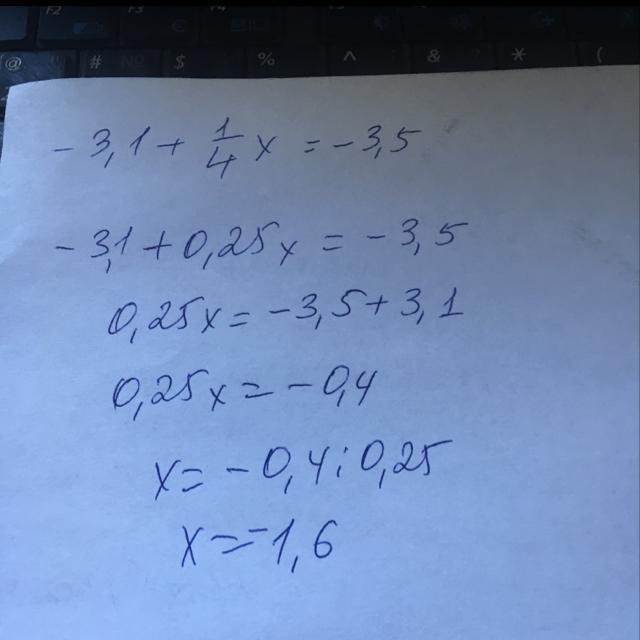 @ # $ % ^ & * (
-3,1 + 1/4 x = -3,5
-3,1 + 0,25x = -3,5
0,25x = -3,5 + 3,1
0,25x = -0,4
x = -0,4 : 0,25
x = -1,6